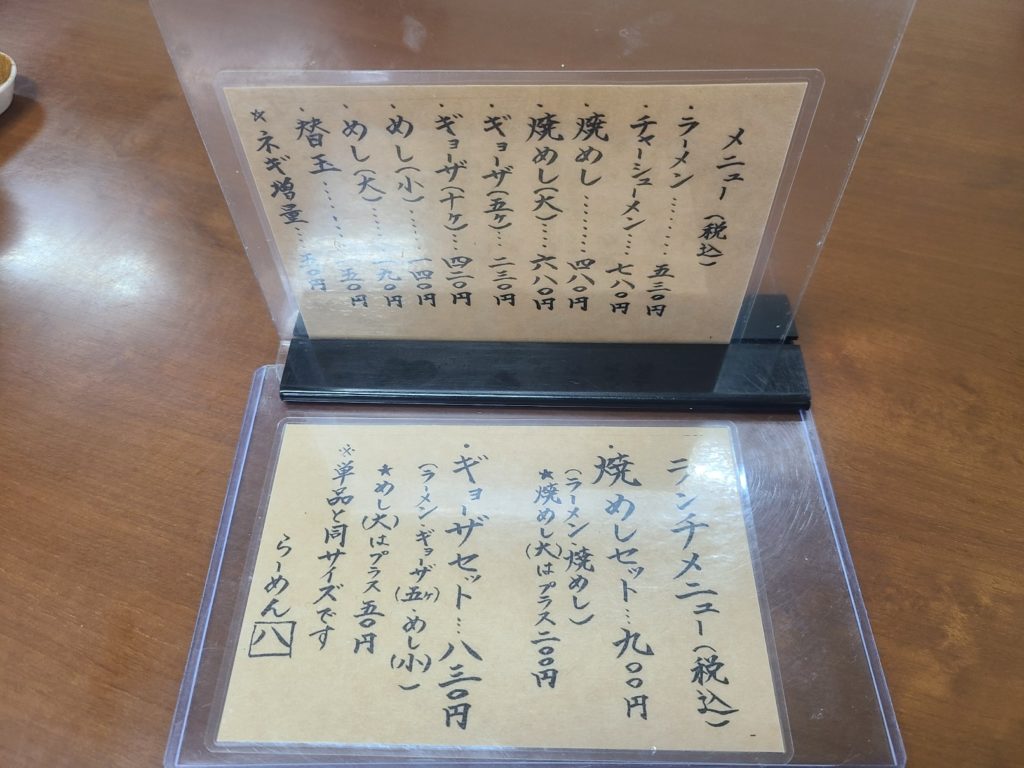 メニュー(税込)
・ラーメン……五三〇円
・チャーシューメン…七八〇円
・焼めし……四八〇円
・焼めし(大)…六八〇円
・ギョーザ(五ヶ)…二三〇円
・ギョーザ(十ヶ)…四二〇円
・めし(小)…一四〇円
・めし(大)…一九〇円
・替玉……円
☆ネギ増量…五〇円
ランチメニュー(税込)
・焼めしセット…九〇〇円
(ラーメン・焼めし)
★焼めし(大)はプラス二〇〇円
・ギョーザセット…八三〇円
(ラーメン・ギョーザ(五ヶ)・めし(小))
★めし(大)はプラス五〇円
※単品と同サイズです
らーめん八